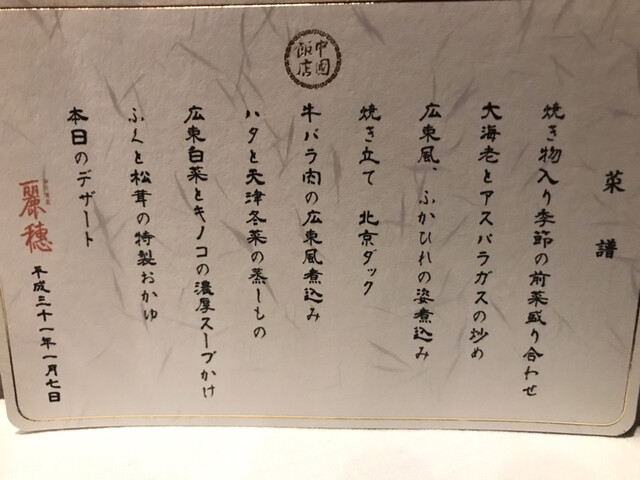 中国飯店
菜譜
焼き物入り季節の前菜盛り合わせ
大海老とアスパラガスの炒め
広東風、ふかひれの姿煮込み
焼き立て 北京ダック
牛バラ肉の広東風煮込み
ハタと天津冬菜の蒸しもの
広東白菜とキノコの濃厚スープかけ
ふくと松茸の特製おかゆ
本日のデザート
麗穂
平成三十一年一月七日